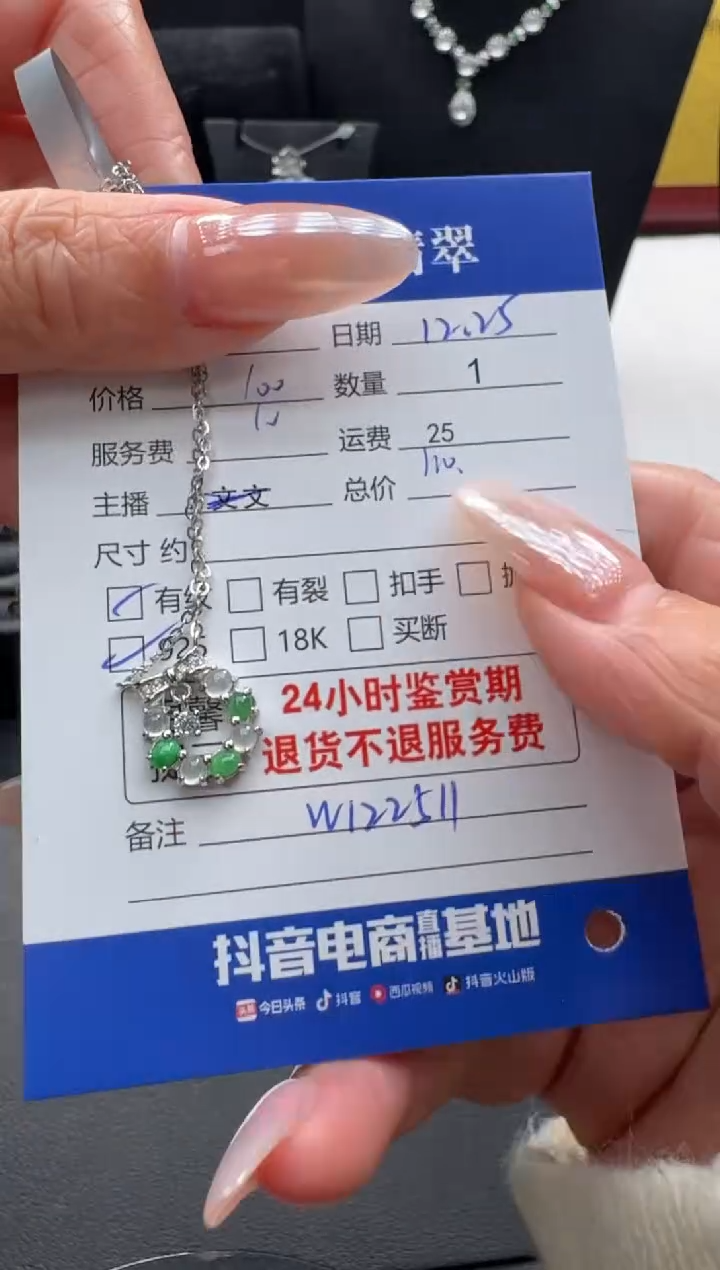 翠
日期 12.25
价格 100 数量 1
10
服务费 运费 25
110.
主播 文文 总价
尺寸 约
有纹 有裂 扣手
925 18K 买断
24小时鉴赏期
退货不退服务费
备注 W122511
抖音电商直播基地
头条 今日头条 抖音 西瓜视频 抖音火山版